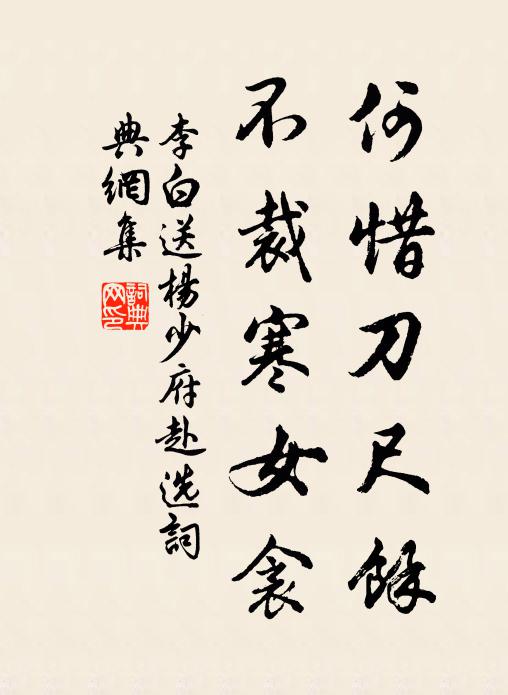 何惜刀尺餘
不裁寒女衾
李白送楊少府赴选詞
典網集
詞典网印